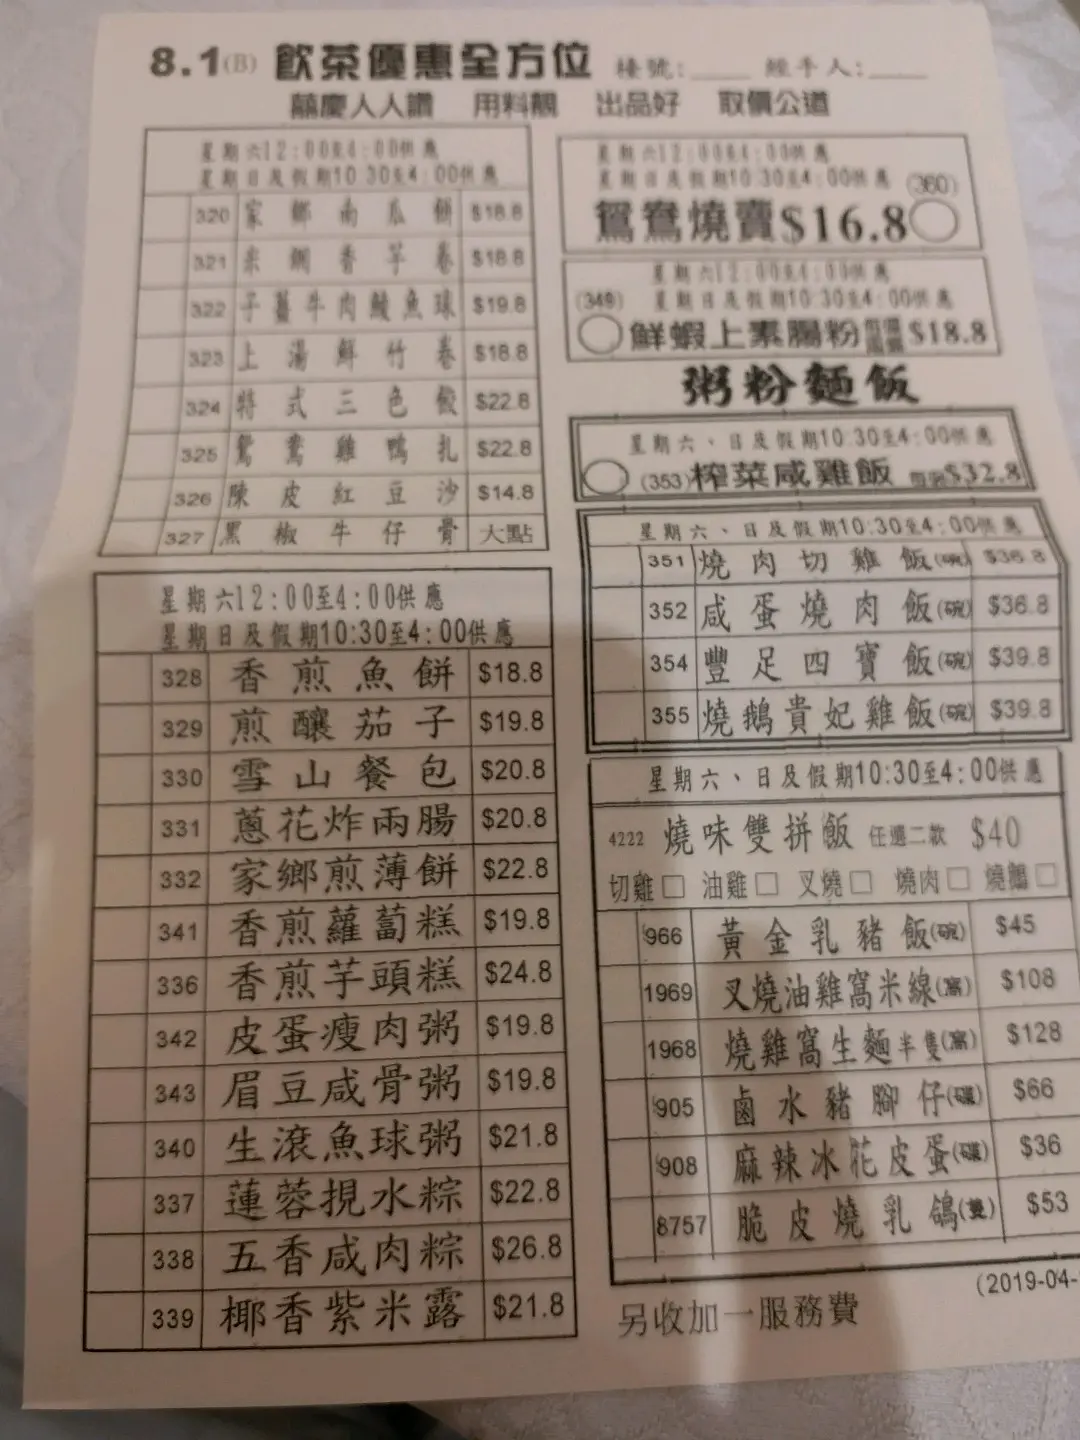 8.1(B) 飲茶優惠全方位 檯號:____ 經手人:____
囍慶人人讚 用料靚 出品好 取價公道
星期六12:00至4:00供應
星期日及假期10:30至4:00供應
320 家鄉南瓜餅 $18.8
321 香芋卷 $18.8
322 子薑牛肉鯪魚球 $19.8
323 上湯鮮竹卷 $18.8
324 特式三色餃 $22.8
325 鴛鴦雞鴨扎 $22.8
326 陳皮紅豆沙 $14.8
327 黑椒牛仔骨 大點
星期六12:00至4:00供應
星期日及假期10:30至4:00供應
328 香煎魚餅 $18.8
329 煎釀茄子 $19.8
330 雪山餐包 $20.8
331 蔥花炸兩腸 $20.8
332 家鄉煎薄餅 $22.8
341 香煎蘿蔔糕 $19.8
336 香煎芋頭糕 $24.8
342 皮蛋瘦肉粥 $19.8
343 眉豆咸骨粥 $19.8
340 生滾魚球粥 $21.8
337 蓮蓉挸水粽 $22.8
338 五香咸肉粽 $26.8
339 椰香紫米露 $21.8
星期六12:00至4:00供應
星期日及假期10:30至4:00供應 (360)
鴛鴦燒賣$16.8
星期六12:00至4:00供應
(349) 星期日及假期10:30至4:00供應
鮮蝦上素腸粉 $18.8
粥粉麵飯
星期六、日及假期10:30至4:00供應
(353)榨菜咸雞飯 $32.8
星期六、日及假期10:30至4:00供應
351 燒肉切雞飯(碗) $36.8
352 咸蛋燒肉飯(碗) $36.8
354 豐足四寶飯(碗) $39.8
355 燒鵝貴妃雞飯(碗) $39.8
星期六、日及假期10:30至4:00供應
4222 燒味雙拼飯 任選二款 $40
切雞□ 油雞□ 叉燒□ 燒肉□ 燒鵝□
966 黃金乳豬飯(碗) $45
1969 叉燒油雞窩米線(窩) $108
1968 燒雞窩生麵半隻(窩) $128
905 鹵水豬腳仔(碟) $66
908 麻辣冰花皮蛋(碟) $36
8757 脆皮燒乳鴿(隻) $53
(2019-04-
另收加一服務費